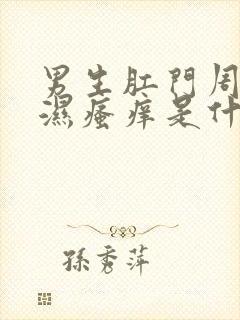 男生肛門周
濕瘙痒是什
孫秀萍